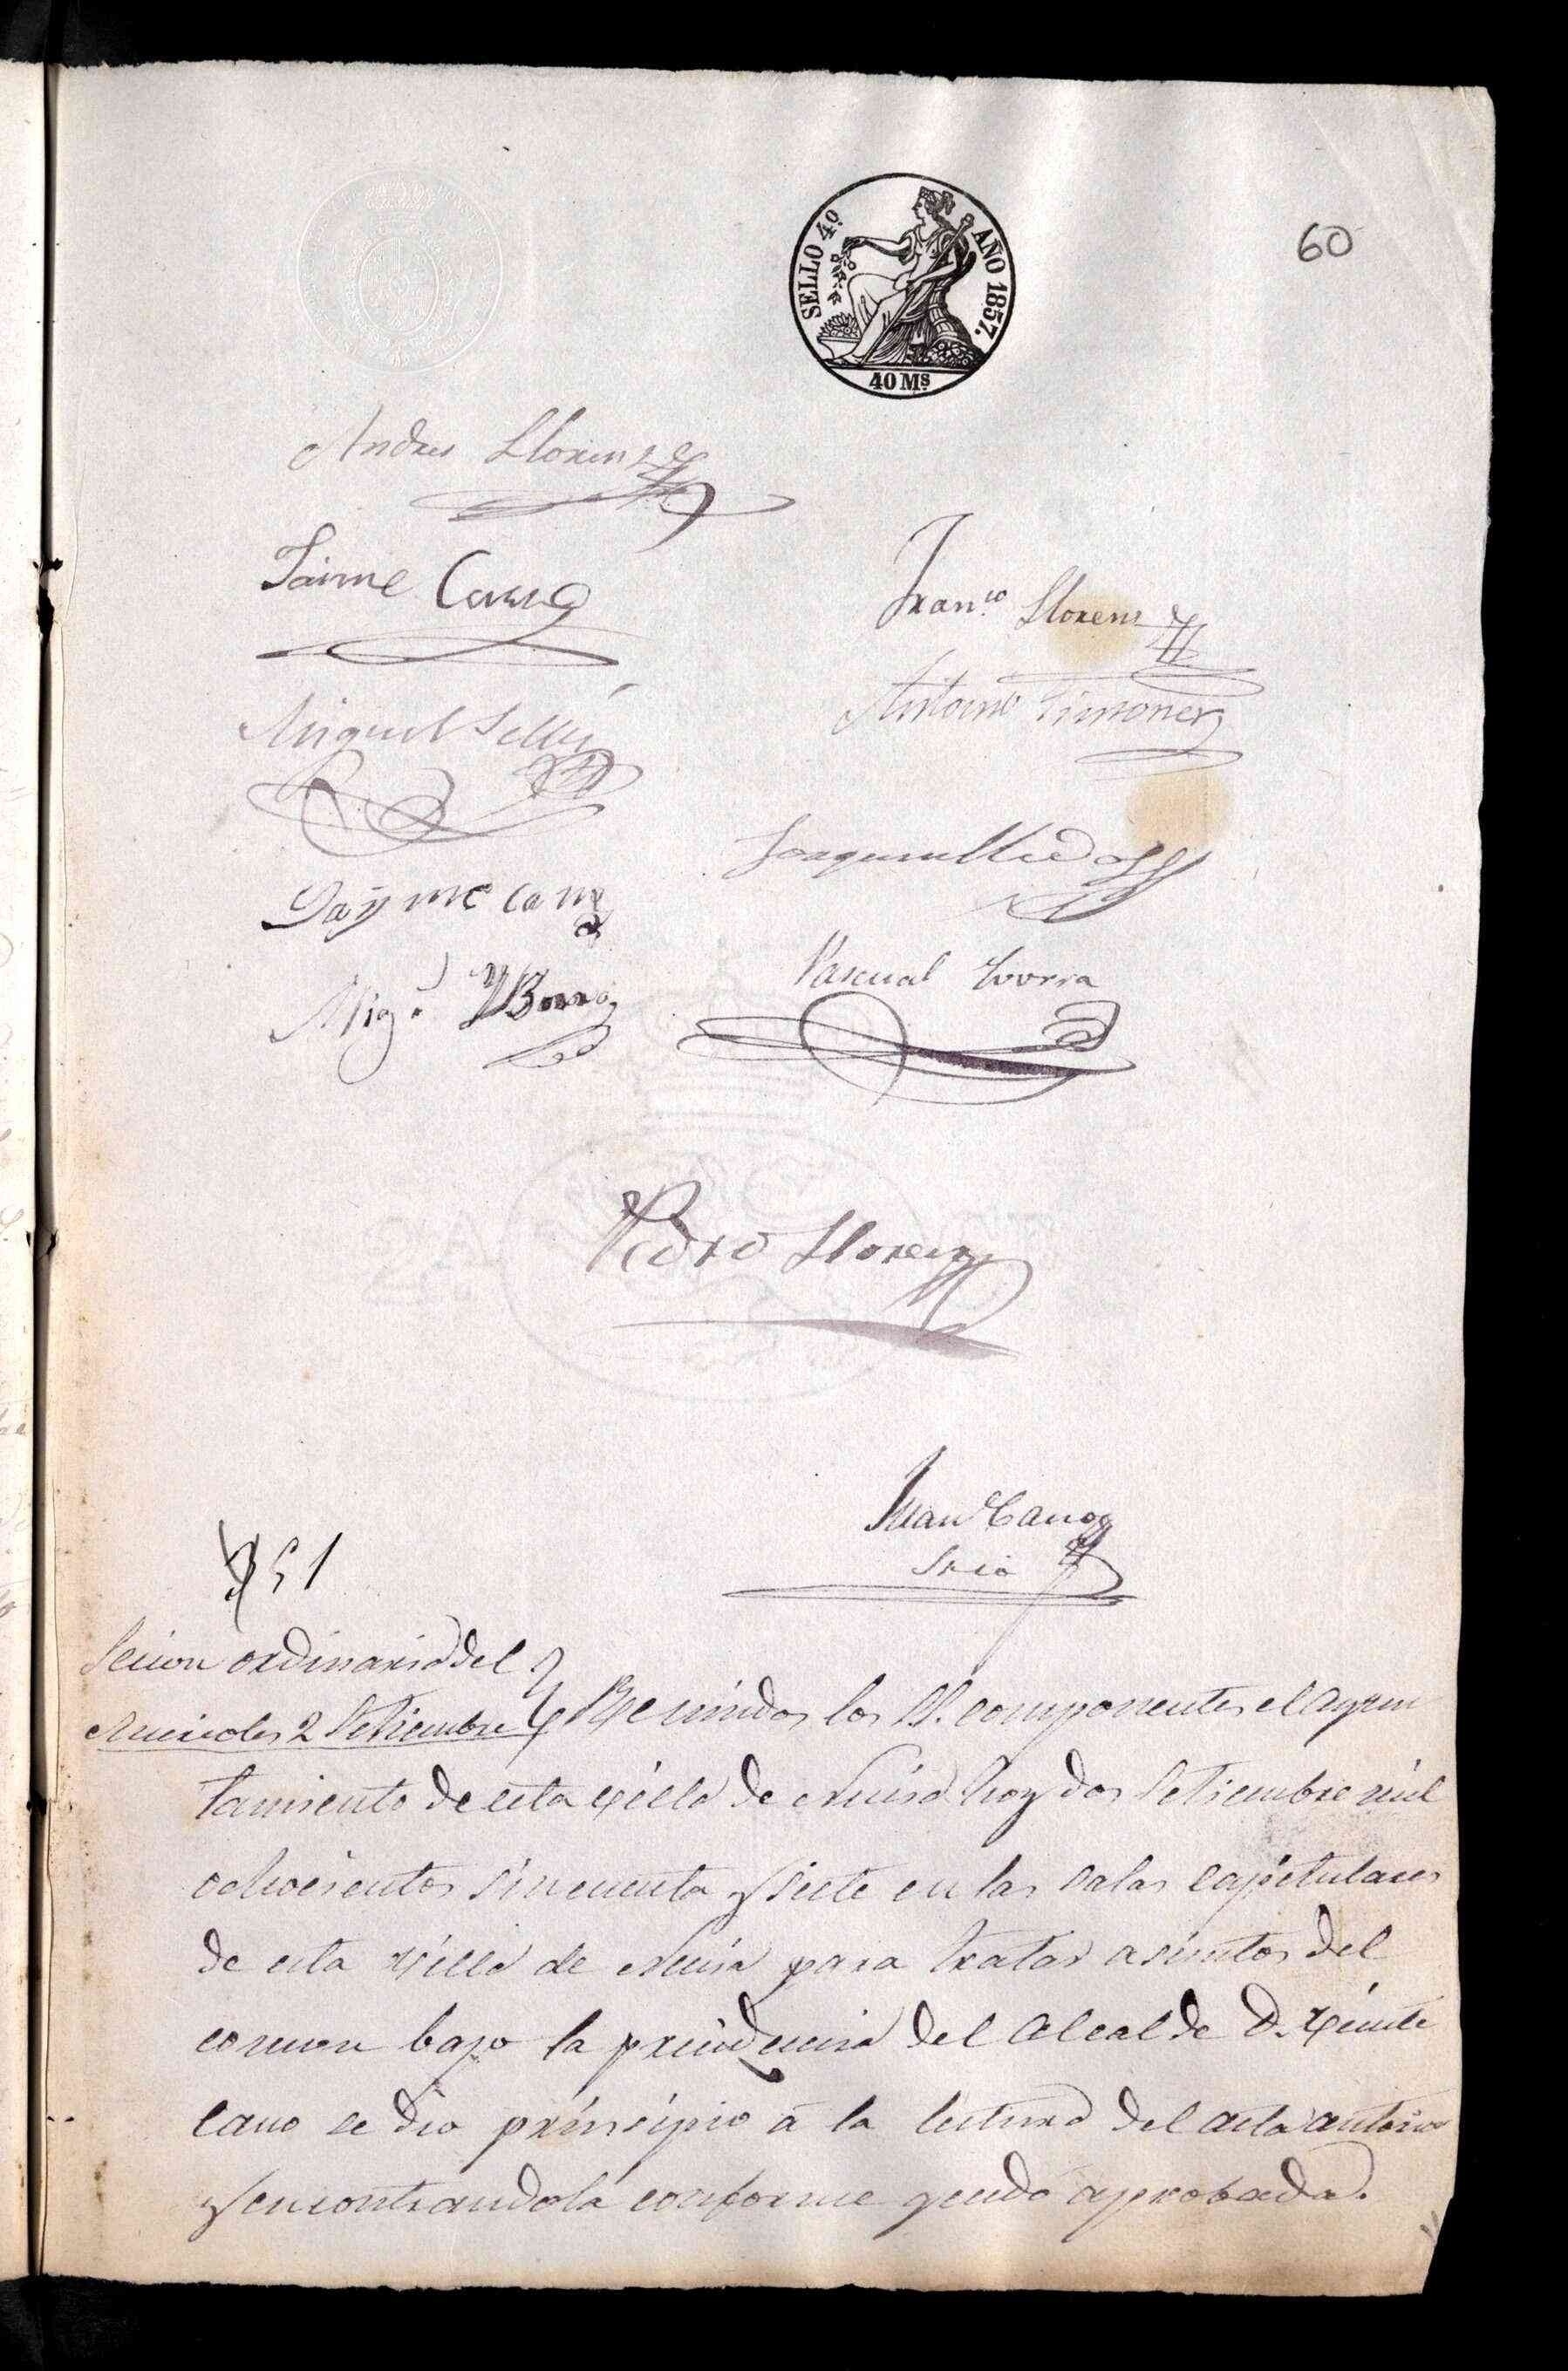 SELLO 4º AÑO 1857.
40 Ms
60
Andres Llorens
Jaime Cano
Franco Llorens
Miguel Sellés
Antonio Timoner
Jayme Cano
Pascual Yvorra
Mig.l
Pedro Llorens
Juan Cano
Srio
51
Secion ordinaria del
Miercoles 2 Setiembre
Reunidos los SS. componentes el ayun
tamiento de esta Villa de Nucia hoy dos Setiembre mil
ochocientos sincuenta y siete en las salas capitulares
de esta Villa de Nucia para tratar asuntos del
comun bajo la precidencia del Alcalde D. Vicente
Cano se dio principio á la lectura del acta anterior
y encontrandola conforme quedó aprobada.